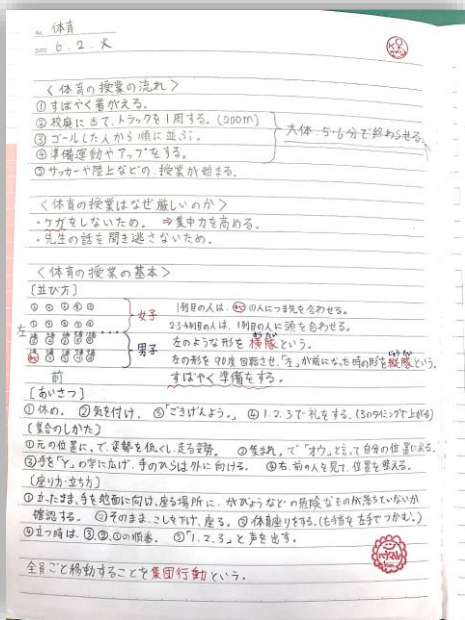 No. 体育
DATE 6.2.火
<体育の授業の流れ>
①すばやく着がえる。
②校庭に出て、トラックを1周する。(200m)
③ゴールした人から順に並ぶ。
大体、5・6分で終わらせる。
④準備運動やアップをする。
⑤サッカーや陸上などの授業が始まる。
<体育の授業はなぜ厳しいのか>
・ケガをしないため。⇒集中力を高める。
・先生の話を聞き逃さないため。
<体育の授業の基本>
[並び方]
女子
1列目の人は、の人につま先を合わせる。
2・3・4列目の人は、1列目の人に頭を合わせる。
左
男子
左のような形を横隊という。
左の形を90度回転させ、「左」が前になった時の形を縦隊という。
前
すばやく準備をする。
[あいさつ]
①休め。②気を付け。③「ごきげんよう。」④1.2.3で礼をする。(3のタイミングで上がる)
[集合のしかた]
①元の位置に、で、姿勢を低くし、走る姿勢。②集まれ。で「オウ」と言って自分の位置に戻る。
③手を「Y」の字に広げ、手のひらは外に向ける。④右、前の人を見て、位置を整える。
[座り方・立ち方]
①立ったまま、手を地面に向け、座る場所に、がびょうなどの危険なものが落ちていないか
確認する。②そのまま、こしを下げ、座る。③体育座りをする。(右手首を左手でつかむ。)
④立つ時は、③,②,①の順番。⑤「1、2、3」と声を出す。
全員ごと移動することを集団行動という。